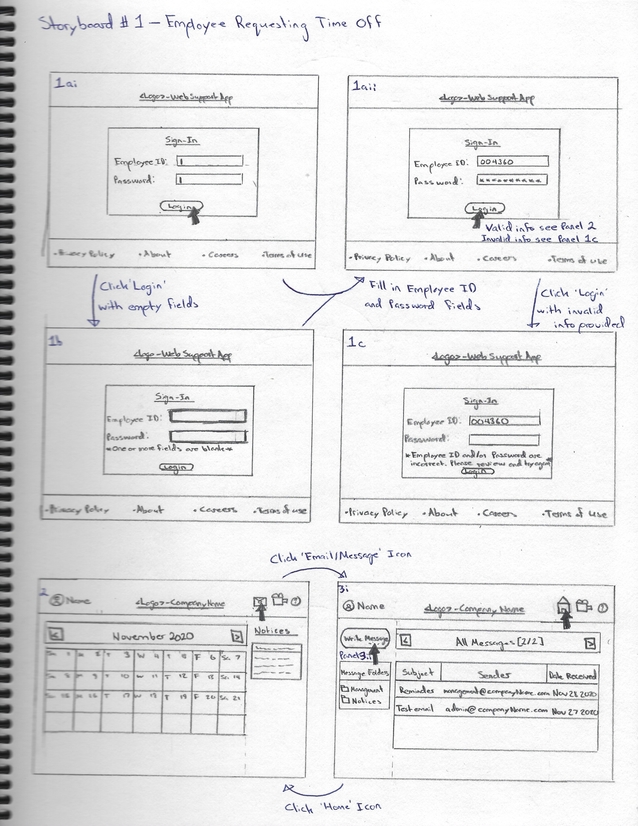 Storyboard #1 - Employee Requesting Time Off
1ai
<Logo>-Web Support App
Sign-In
Employee ID:
Password:
Login
·Privacy Policy ·About ·Careers ·Terms of Use
1aii
<Logo>-Web Support App
Sign-In
Employee ID: 004360
Password: **********
Login
Valid info see Panel 2
Invalid info see Panel 1c
·Privacy Policy ·About ·Careers ·Terms of Use
Click 'Login'
with empty fields
Fill in Employee ID
and Password Fields
Click 'Login'
with invalid
info provided
1b
<Logo>-Web Support App
Sign-In
Employee ID:
Password:
*One or more fields are blank*
Login
·Privacy Policy ·About ·Careers ·Terms of use
1c
<Logo>-Web Support App
Sign-In
Employee ID: 004360
Password:
*Employee ID and/or Password are
incorrect. Please review and try again*
Login
·Privacy Policy ·About ·Careers ·Terms of Use
Click 'Email/Message' Icon
2
Name
<Logo>-Company Name
< November 2020 >
Su. 1 M 2 T 3 W 4 T 5 F 6 Sa. 7
Su 8 M 9 T 10 W 11 T 12 F 13 Sa. 14
Su. 15 M 16 T 17 W 18 T 19 F 20 Sa. 21
Notices
3i
Name
<Logo>-Company Name
Write Message
Message Folders
Notices
< All Messages [2/2] >
Subject Sender Date Received
Reminder management@companyName.com Nov 28 2020
Test email admin@companyName.com Nov 27 2020
Click 'Home' Icon